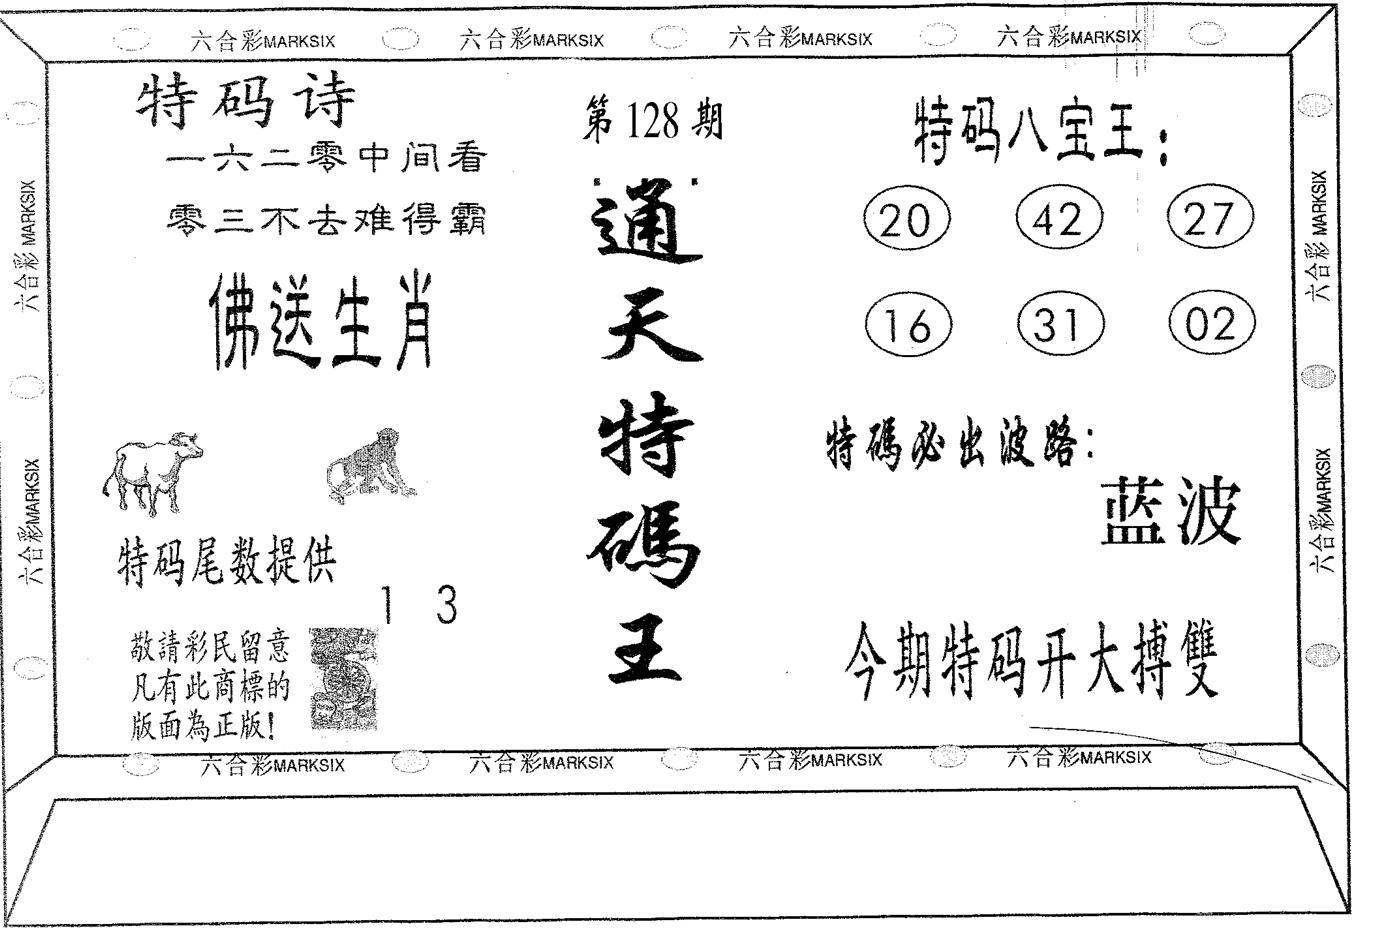 六合彩MARKSIX 六合彩MARKSIX 六合彩MARKSIX 六合彩MARKSIX
特码诗
一六二零中间看
零三不去难得霸
佛送生肖
特码尾数提供
1 3
敬請彩民留意
凡有此商標的
版面為正版!
第128期
通天特碼王
特码八宝王:
20 42 27
16 31 02
特碼必出波路:
蓝波
今期特码开大搏雙
六合彩MARKSIX
六合彩MARKSIX
六合彩MARKSIX
六合彩MARKSIX
六合彩MARKSIX 六合彩MARKSIX 六合彩MARKSIX 六合彩MARKSIX